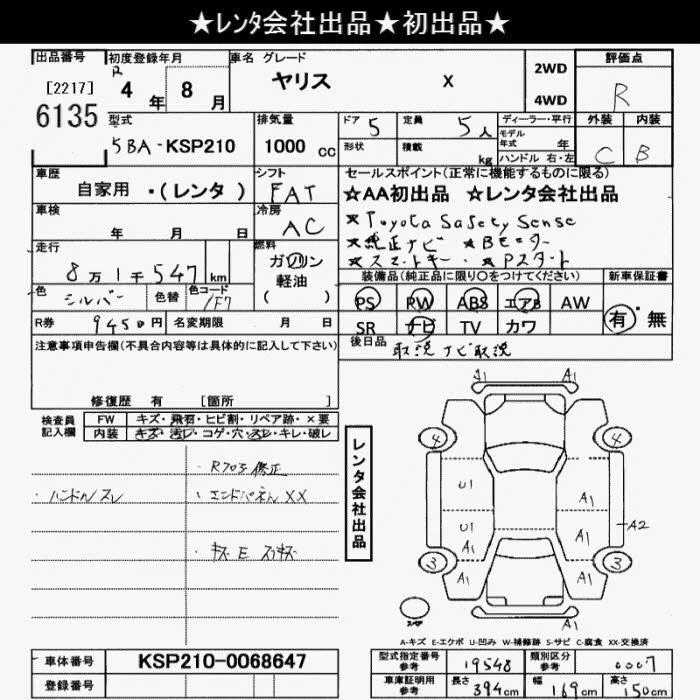 ★レンタ会社出品★初出品★
出品番号
[2217]
6135
初度登録年月
R 4 年 8 月
車名 グレード
ヤリス X
2WD
4WD
評価点
R
外装 内装
C B
型式
5BA-KSP210
排気量
1000 cc
ドア 5
定員 5人
形状
積載 kg
ディーラー・平行
モデル年式 年
ハンドル 右・左
車歴
自家用 ・(レンタ )
シフト
FAT
セールスポイント(正常に機能するものに限る)
☆AA初出品 ☆レンタ会社出品
★Toyota Safety Sense
★純正ナビ ★Bモニター
★スマートキー ★Pスタート
車検
年 月 日
冷房
AC
走行
8万1千547 km
燃料
ガソリン
軽油
( )
色
シルバー
色替
色コード
1F7
装備品(純正品に限り○をつけてください)
新車保証書
PS PW ABS エアB AW
SR ナビ TV カワ
有・無
R券 9450円
名変期限 月 日
後日品
取説 ナビ取説
注意事項申告欄(不具合内容等は具体的に記入して下さい)
修復歴 有 [箇所 ]
検査員
記入欄
FW キズ・飛石・ヒビ割・リペア跡・×要
内装 キズ・汚レ・コゲ・穴・スレ・キレ・破レ
・ハンドルスレ
・エンドパネルXX
・キズ E スリキズ
レンタ会社出品
A1
A1
4
4
U1
A1
U1
A1
A2
A1
A1
3
3
A1
A1
A1
スペア
A-キズ E-エクボ U-凹み W-補修跡 S-サビ C-腐食 XX-交換済
車体番号 KSP210-0068647
登録番号
型式指定番号
参考
19548
類別区分
参考
0007
車庫証明用
参考
長さ 394cm
幅 169cm
高さ 150cm